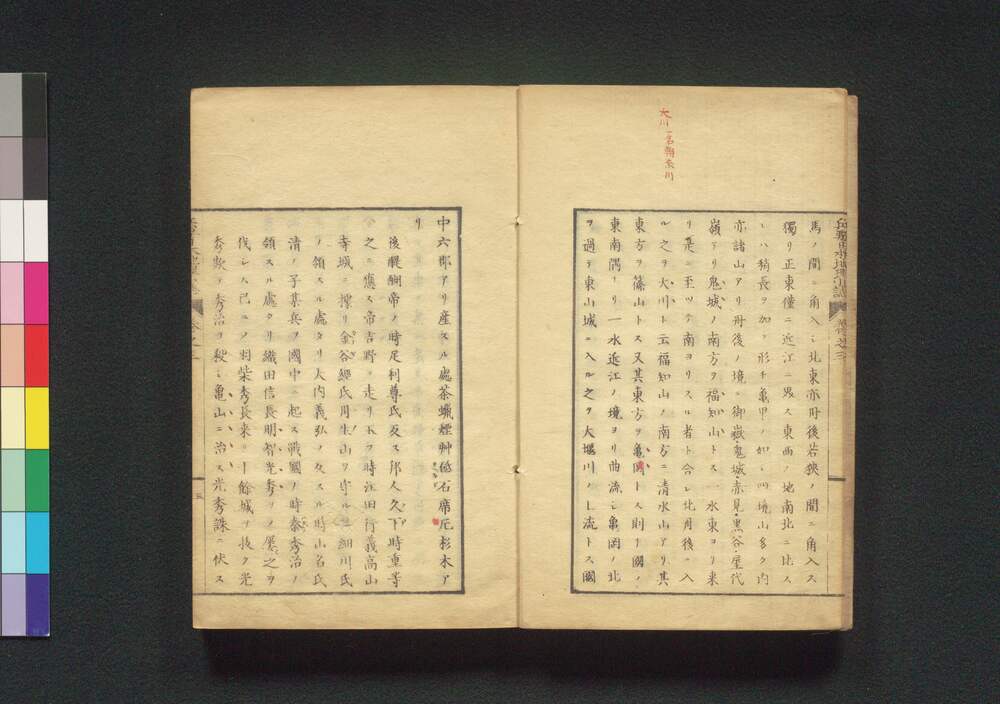 大川一名朝来川
馬ノ間ニ角入シ北東亦丹後若狭ノ間ニ角入ス
獨リ正東僅ニ近江ニ界ス東西ノ地南北ニ比ス
レハ稍長ヲ加フ形チ亀甲ノ如シ四境山多ク内
亦諸山アリ丹後ノ境ニ御嶽・鬼城・赤見・黒谷・屋代
嶺アリ鬼城ノ南方ヲ福知山トス一水東ヨリ来
リ是ニ至ツテ南ヨリスル者ト合シ北丹後ニ入
ル之ヲ大川ト云福知山ノ南方ニ清水山アリ其
東方ヲ篠山トス又其東方ヲ亀岡トス則チ國ノ
東南隅ナリ一水近江ノ境ヨリ曲流シ亀岡ノ北
ヲ過テ東山城ニ入ル之ヲ大堰川ノ上流トス國
中六郡アリ産スル處茶蝋煙艸砥石席瓦杉木ア
リ
後醍醐帝ノ時足利尊氏反ス郎人久下時重等
之ニ應ス帝吉野ニ走リ玉フ時江田行義高山
寺城ニ據リ金谷經氏丹生山ヲ守ル 細川氏
ノ領スル處タリ大内義弘ノ反スル時山名氏
清ノ子某兵ヲ國中ニ起ス戰國ノ時秦秀治ノ
領スル處タリ織田信長明智光秀ヲノ屡之ヲ
伐シム已ニノ羽柴秀長来リ十餘城ヲ抜ク光
秀欺テ秀治ヲ殺シ亀山ニ治ス光秀誅ニ伏ス